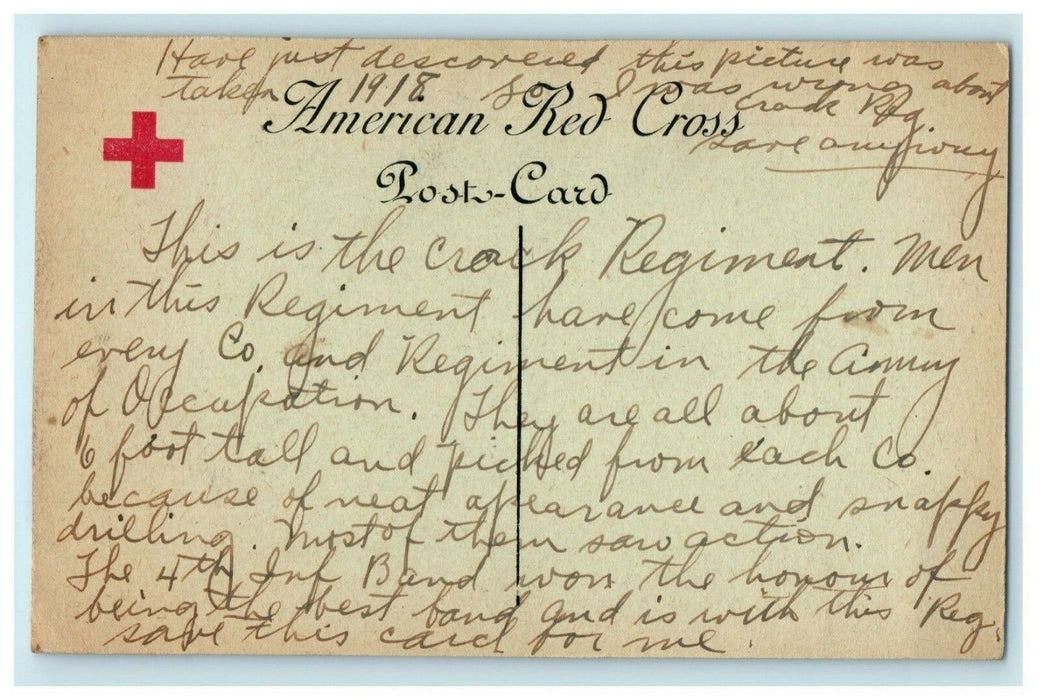 Have just descovered this picture was
taken 1918 So I was wrong about
crack Reg
save anyway
American Red Cross
Post-Card
This is the crack Regiment. Men
in this Regiment have come from
every Co. and Regiment in the Army
of Occupation. They are all about
6 foot tall and picked from each Co.
because of neat apearance and snappy
drilling. Most of them saw action.
The 4th Inf Band won the honour of
being the best band and is with this Reg.
save this card for me.